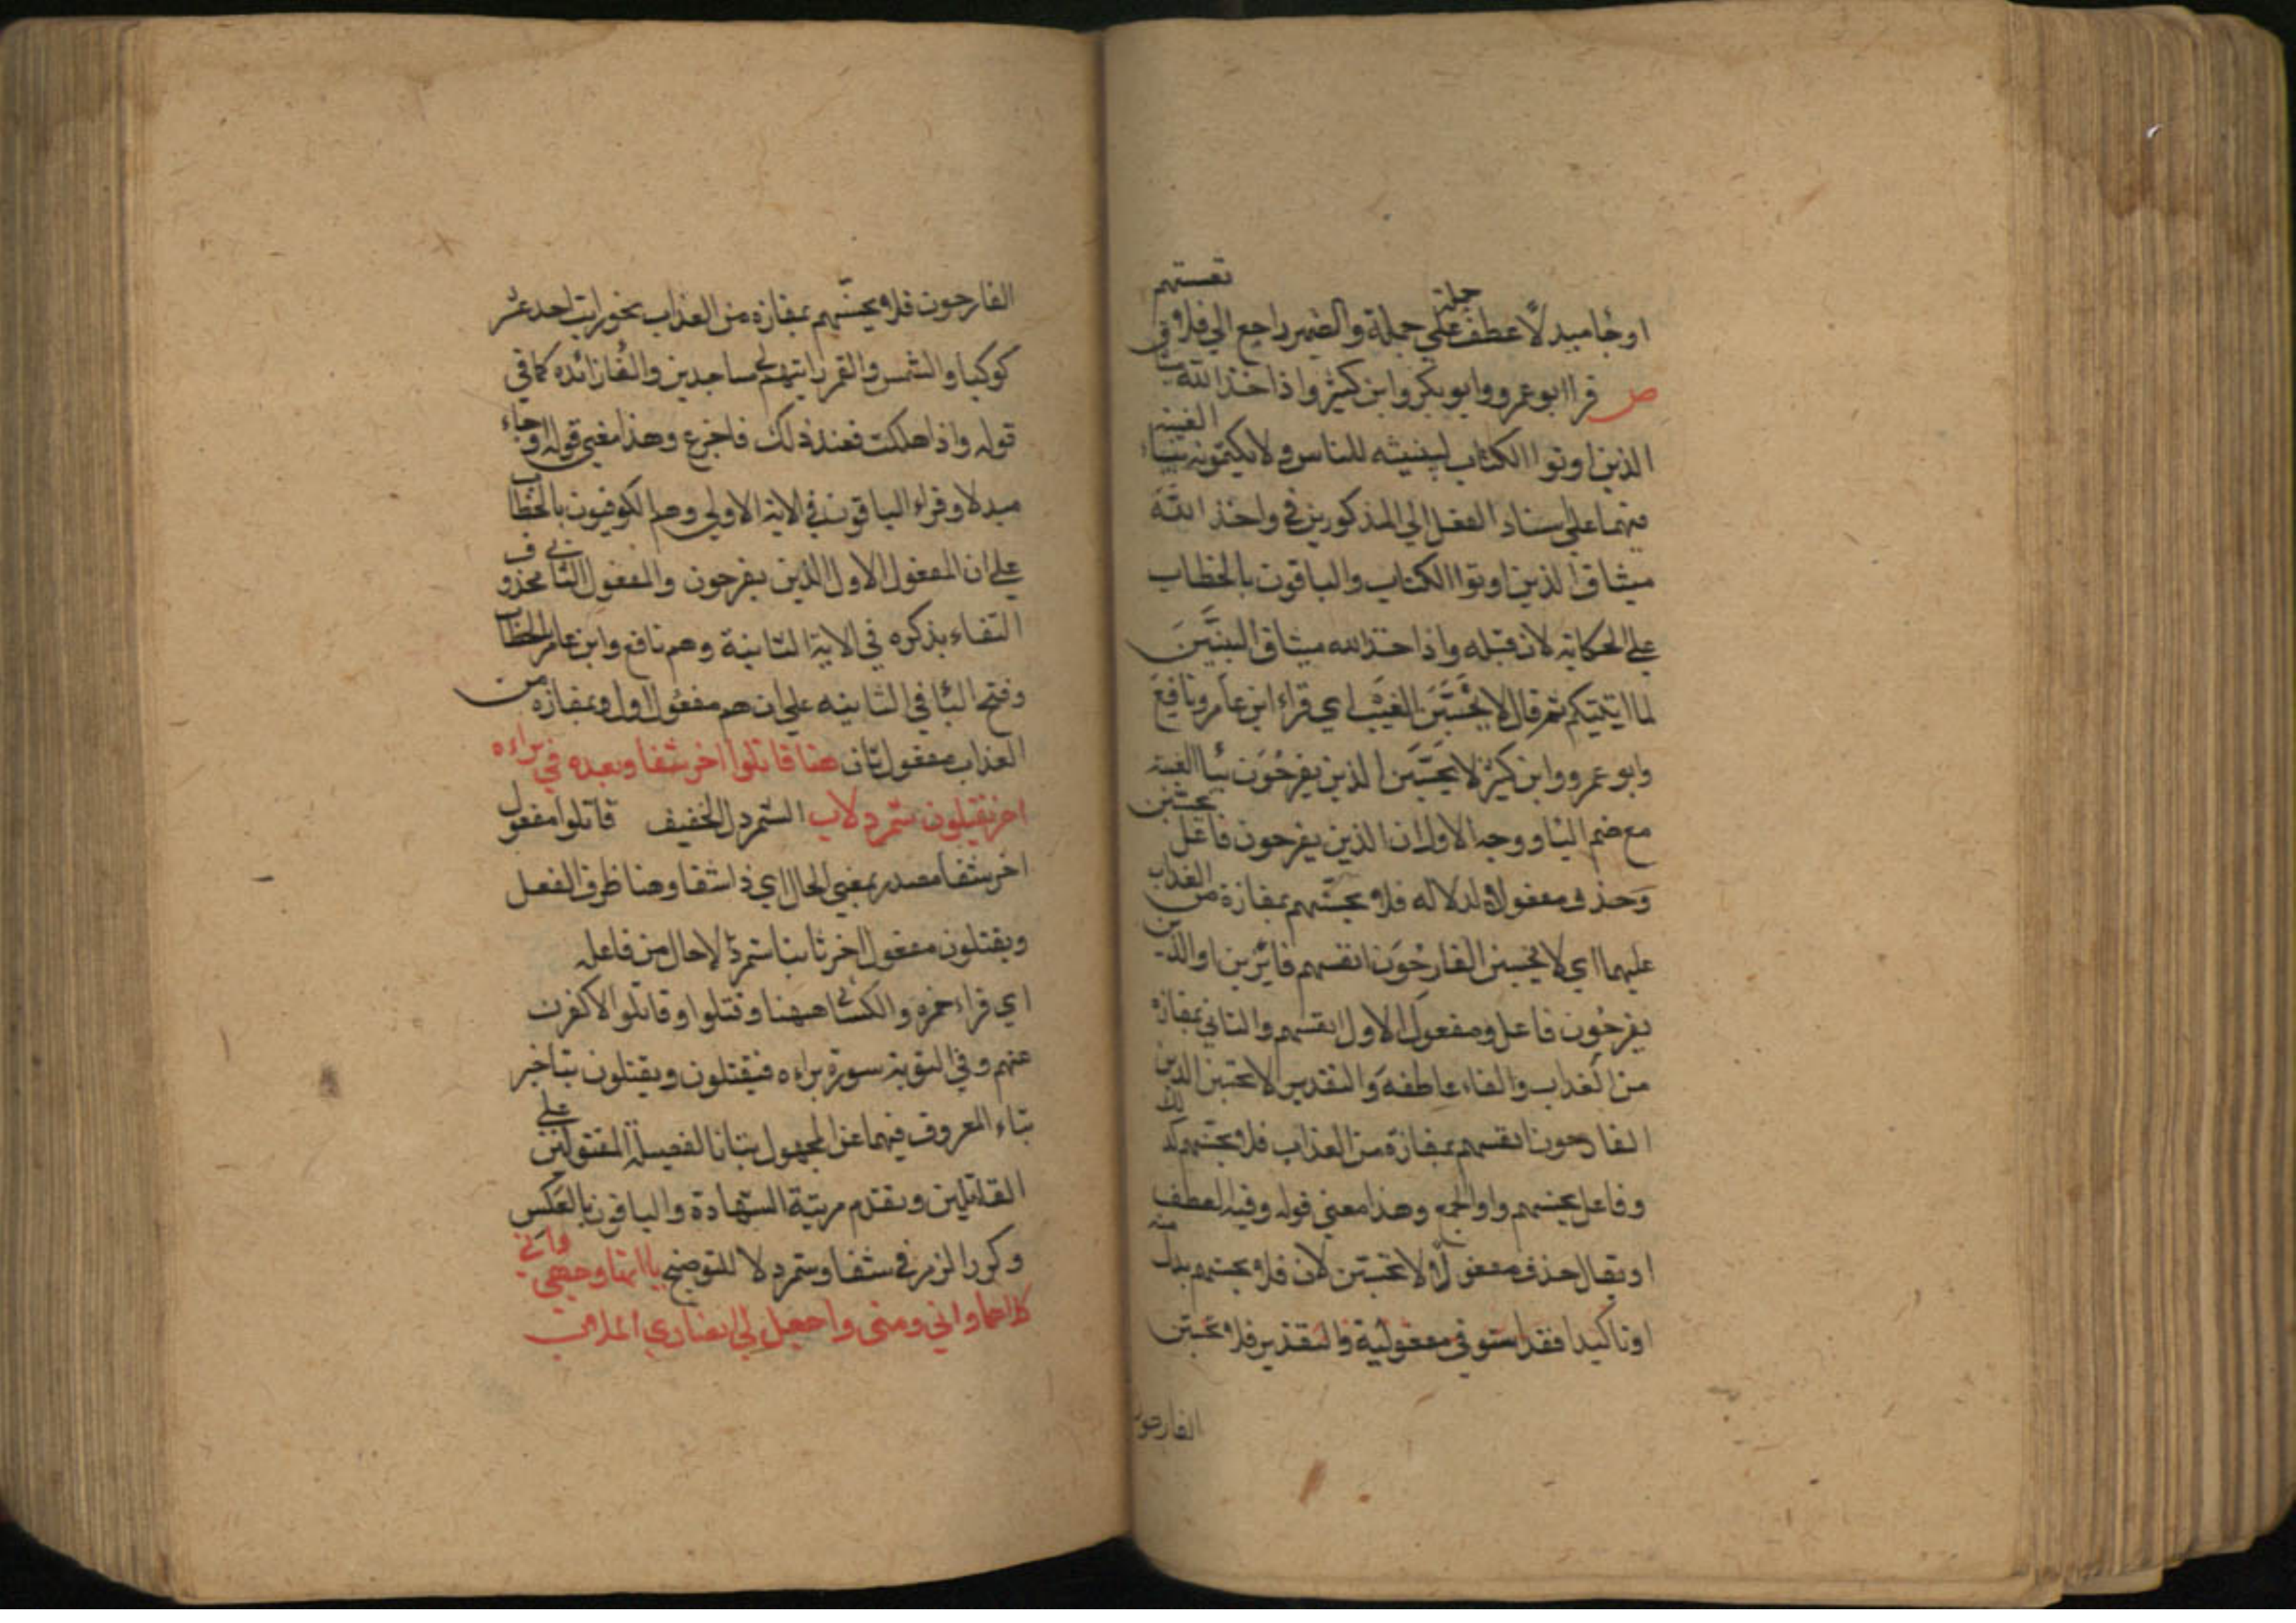 او جا مبدلا عطف جملة على جملة والضمير راجع الي فلا تحسبنهم
ص قرا ابو عمرو وابو بكر وابن كثير واذ اخذ الله ميثا
الذين اوتوا الكتاب ليبيننه للناس ولا يكتمونه بياء الغيبة
فيهما على اسناد الفعل الي المذكورين في واخذ الله
ميثاق الذين اوتوا الكتاب والباقون بالخطاب
علي الحكاية لان قبله واذ اخذ الله ميثاق النبيين
لما اتيتكم ثم قال لا يحسبن الغيب اي قراء ابن عامر ونافع
وابو عمرو وابن كثير لا يحسبن الذين يفرحون بيا الغيبة
مع ضم البا ووجه الاول ان الذين يفرحون فاعل يحسبن
وحذف مفعولاه لدلالة فلا يحسبنهم بمفازة من العذاب
عليهما اي لا يحسبن الفارحون انفسهم فائزين او الذين
يفرحون فاعل ومفعول الاول انفسهم والثاني بمفازة
من العذاب والفاء عاطفة والتقدير لا يحسبن الذين
الفارحون انفسهم بمفازة من العذاب فلا يحسبنهم كذلك
وفاعل يحسبنهم واو الجمع وهذا معني قوله وفيه العطف
او يقال حذف مفعولا لا يحسبن لان فلا يحسبنهم بدل منه
او تاكيد فقد استوفي مفعوليه والتقدير فلا يحسبن
الفارحون
الفارحون فلا يحسبنهم بمفازة من العذاب نحو رايت احد عشر
كوكبا والشمس والقمر رايتهم لي ساجدين والفا زائده كما في
قوله واذا هلكت فعند ذلك فاجزع وهذا معني قوله او جاء
مبدلا وقراء الباقون في الاية الاولي وهم الكوفيون بالخطاب
علي ان المفعول الاول الذين يفرحون والمفعول الثاني محذوف
التفاء بذكره في الاية الثانية وهم نافع وابن عامر الخطاب
وفتح البا في الثانيه علي ان هم مفعول اول وبمفازه من
العذاب مفعول ثان هنا قاتلوا اخر شفا وبعده في براءه
اخر يقتلون شمردلا ب الشمردل الخفيف قاتلوا مفعول
اخر شفا مصدر بمعني الحال اي ذا شفا وهنا ظرف الفعل
ويقتلون مفعول اخر ثابتا شمردلا حال من فاعله
اي قراء حمزه والكسائي ههنا وقتلوا وقاتلوا لاكفرن
عنهم وفي التوبة سورة براءه فيقتلون ويقتلون بتاخير
بناء المعروف فيهما عن المجهول بيانا لفضيلة المقتولين علي
القاتلين وتقدم مرتبة الشهادة والباقون بالعكس
وكرر الرمز في شفا وشمردلا للتوضيح يا اتها وجهي واني
كلاهما واني ومني واجعل لي انصاري الملا